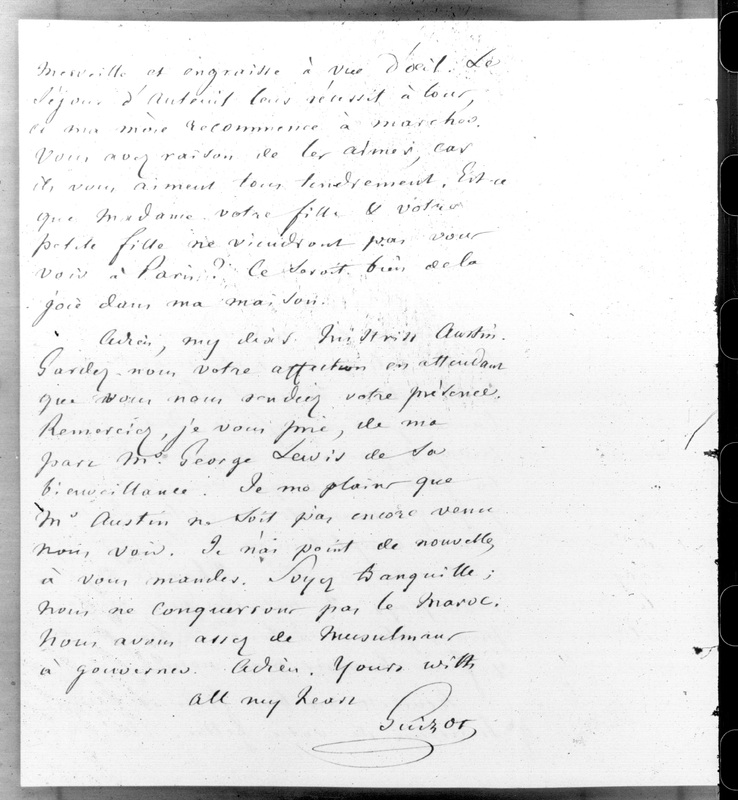 merveille et engraisse à vue d'œil. Le
Séjour d'Auteuil leur réussit à tous,
et ma mère recommence à marcher.
Vous avez raison de les aimer, car
ils vous aiment tous tendrement. Est-ce
que Madame votre fille & votre
petite fille ne viendront pas vous
voir à Paris? Ce seroit bien de la
joie dans ma maison.
Adieu, my dear Mistriss Austin.
Gardez-nous votre affection en attendant
que vous nous rendiez votre présence.
Remerciez, je vous prie, de ma
part Mr. George Lewis de sa
bienveillance. Je me plains que
Mr Austin ne soit pas encore venu
nous voir. Je n'ai point de nouvelles
à vous mander. Soyez tranquille;
nous ne conquerrons pas le Maroc.
Nous avons assez de Musulmans
à gouverner. Adieu. Yours with
all my heart
Guizot